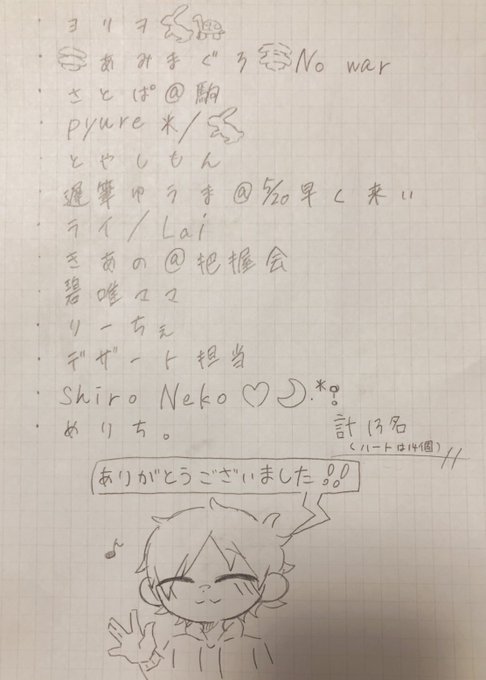 ・ヨリヲ
・あみまぐろ No war
・さとぱ@駒
・pyure */
・とやしもん
・遅筆ゆうま@5/20早く来い
・ライ/Lai
・きあの@把握会
・碧唯ママ
・りーちぇ
・デザート担当
・Shiro Neko ♡☽.*?
・めりち。
計13名
(ハートは14個)
ありがとうございました!!
♪